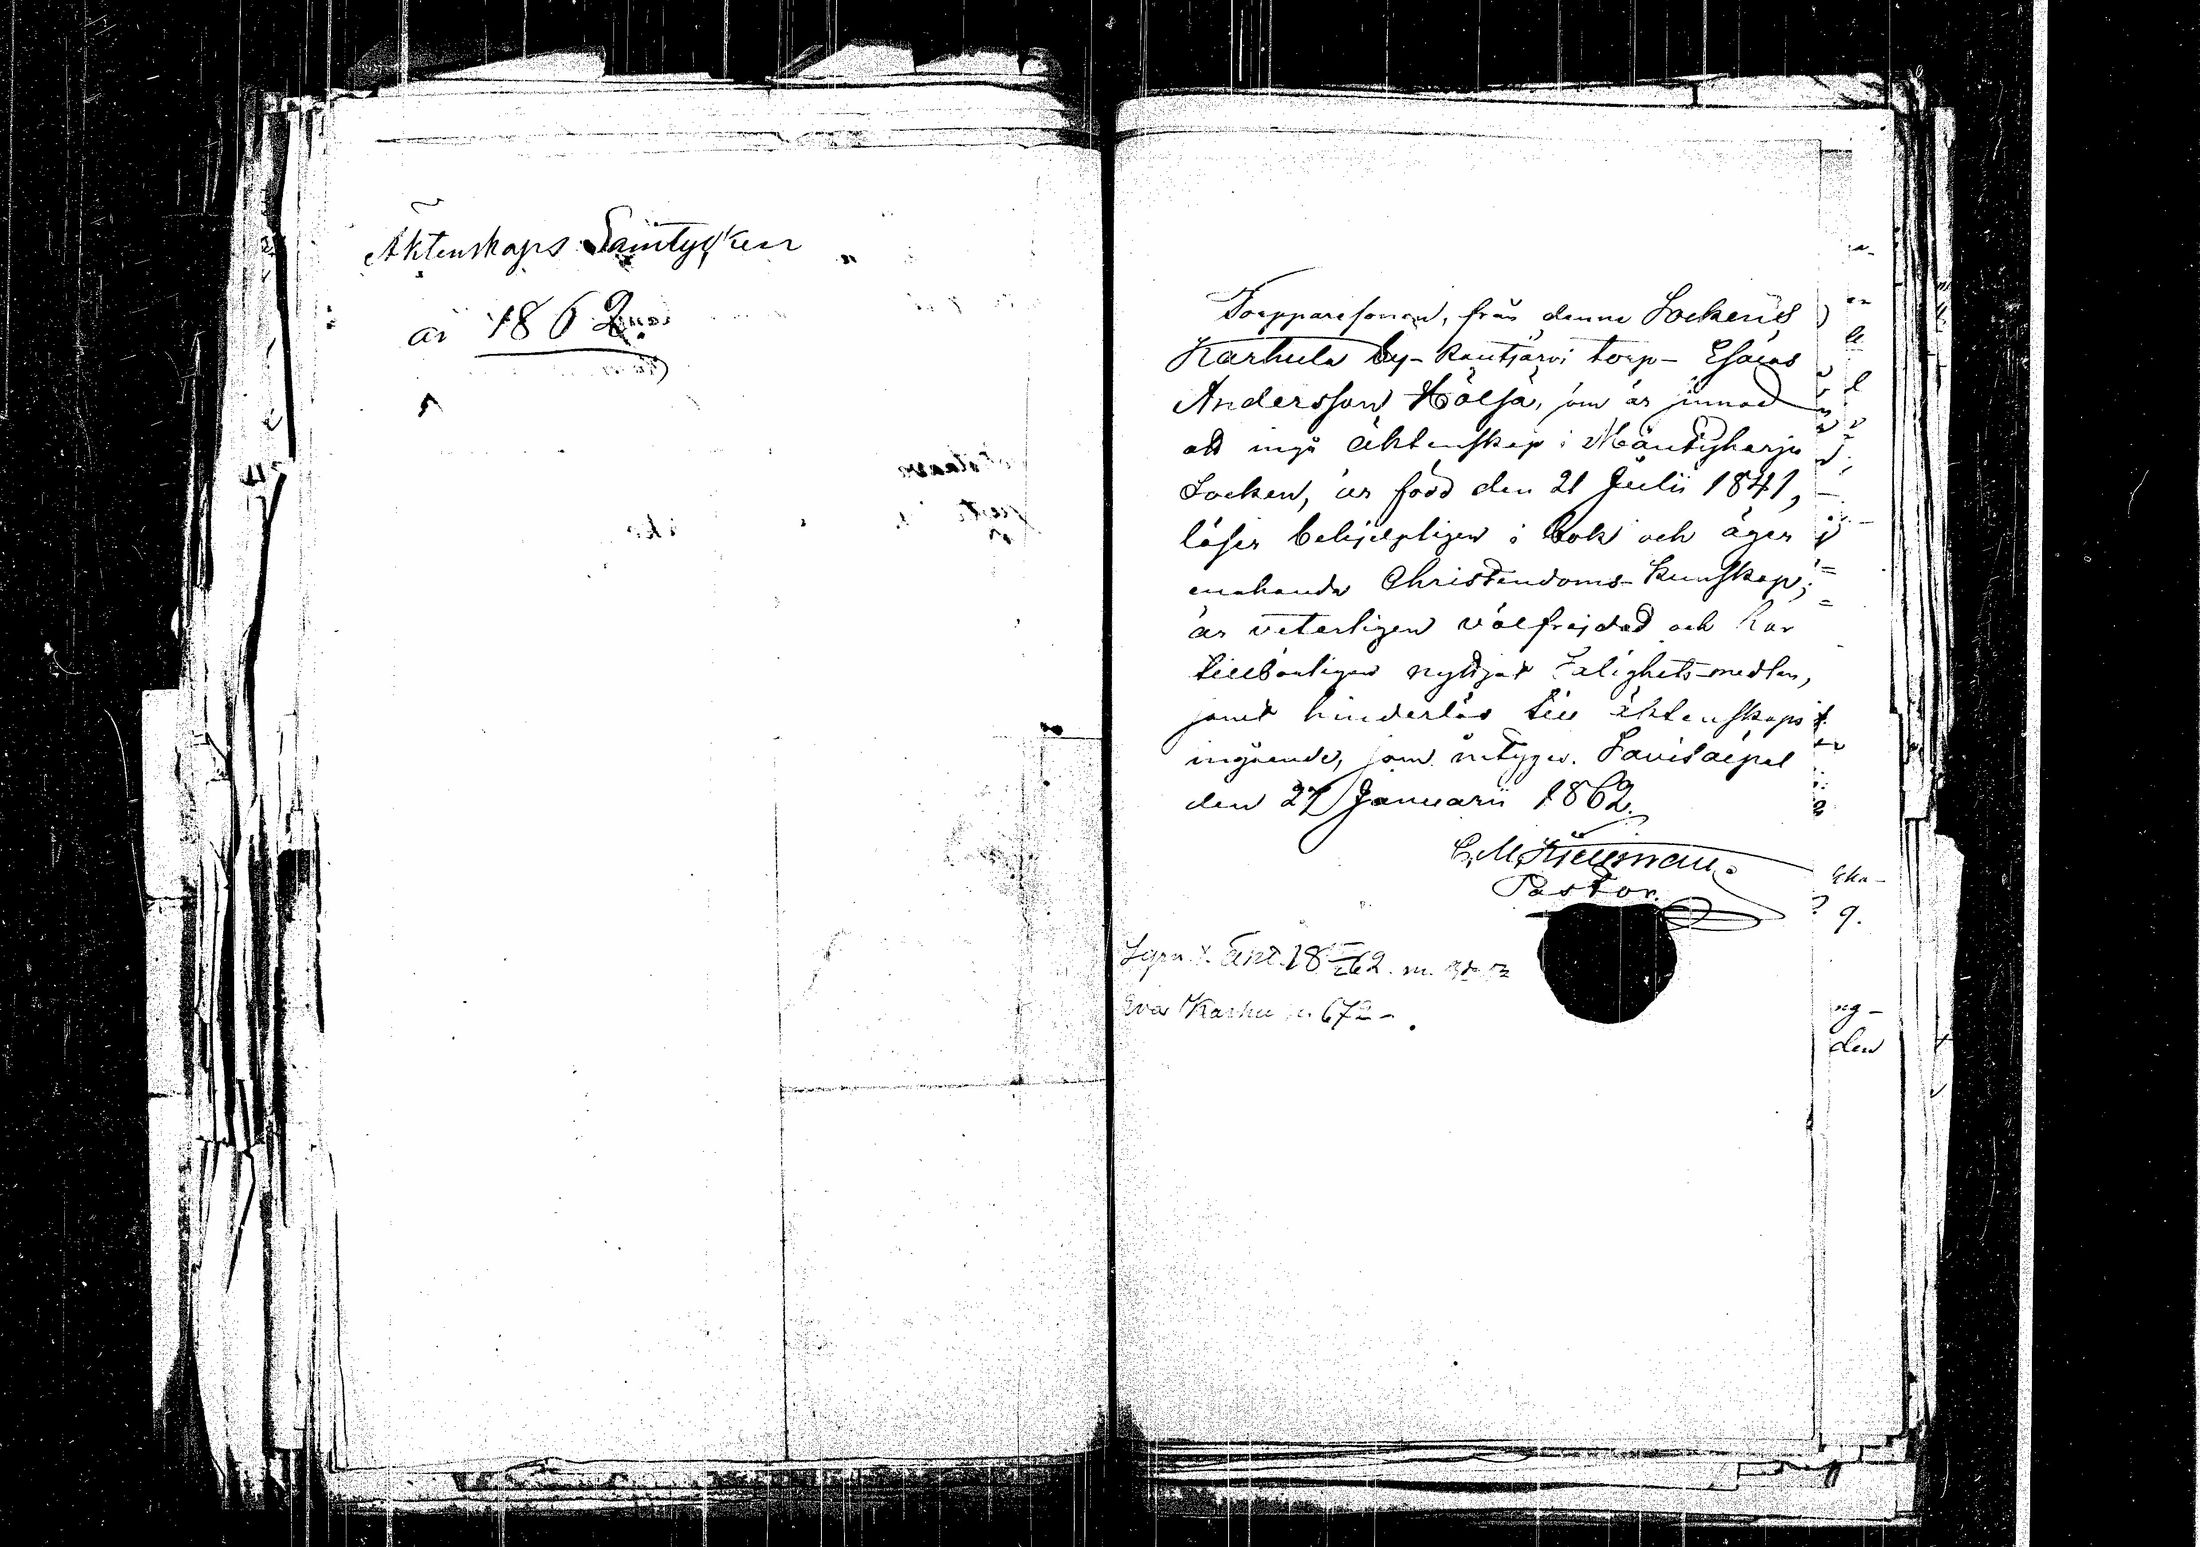 Äktenskaps Samtycken
år 1862
Torpparesonen, från denne Sockens
Karhula by - Kautjärvi torp - Esaias
Andersson Hölsä, som är sinnad
att ingå äktenskap i Mäntyharju
Socken, är född den 21 Julii 1841,
läser behjelpligen i bok och äger
enahanda Christendoms-Kunskap;
är veterligen välfrejdad och har
tillbörligen nyttjat Salighets-medlen,
samt hinderlös till äktenskaps
ingående, som intygar. Savitaipal
den 27 Januarii 1862.
C. M. Kiellman
Pastor.
Eva Karhu 672
den